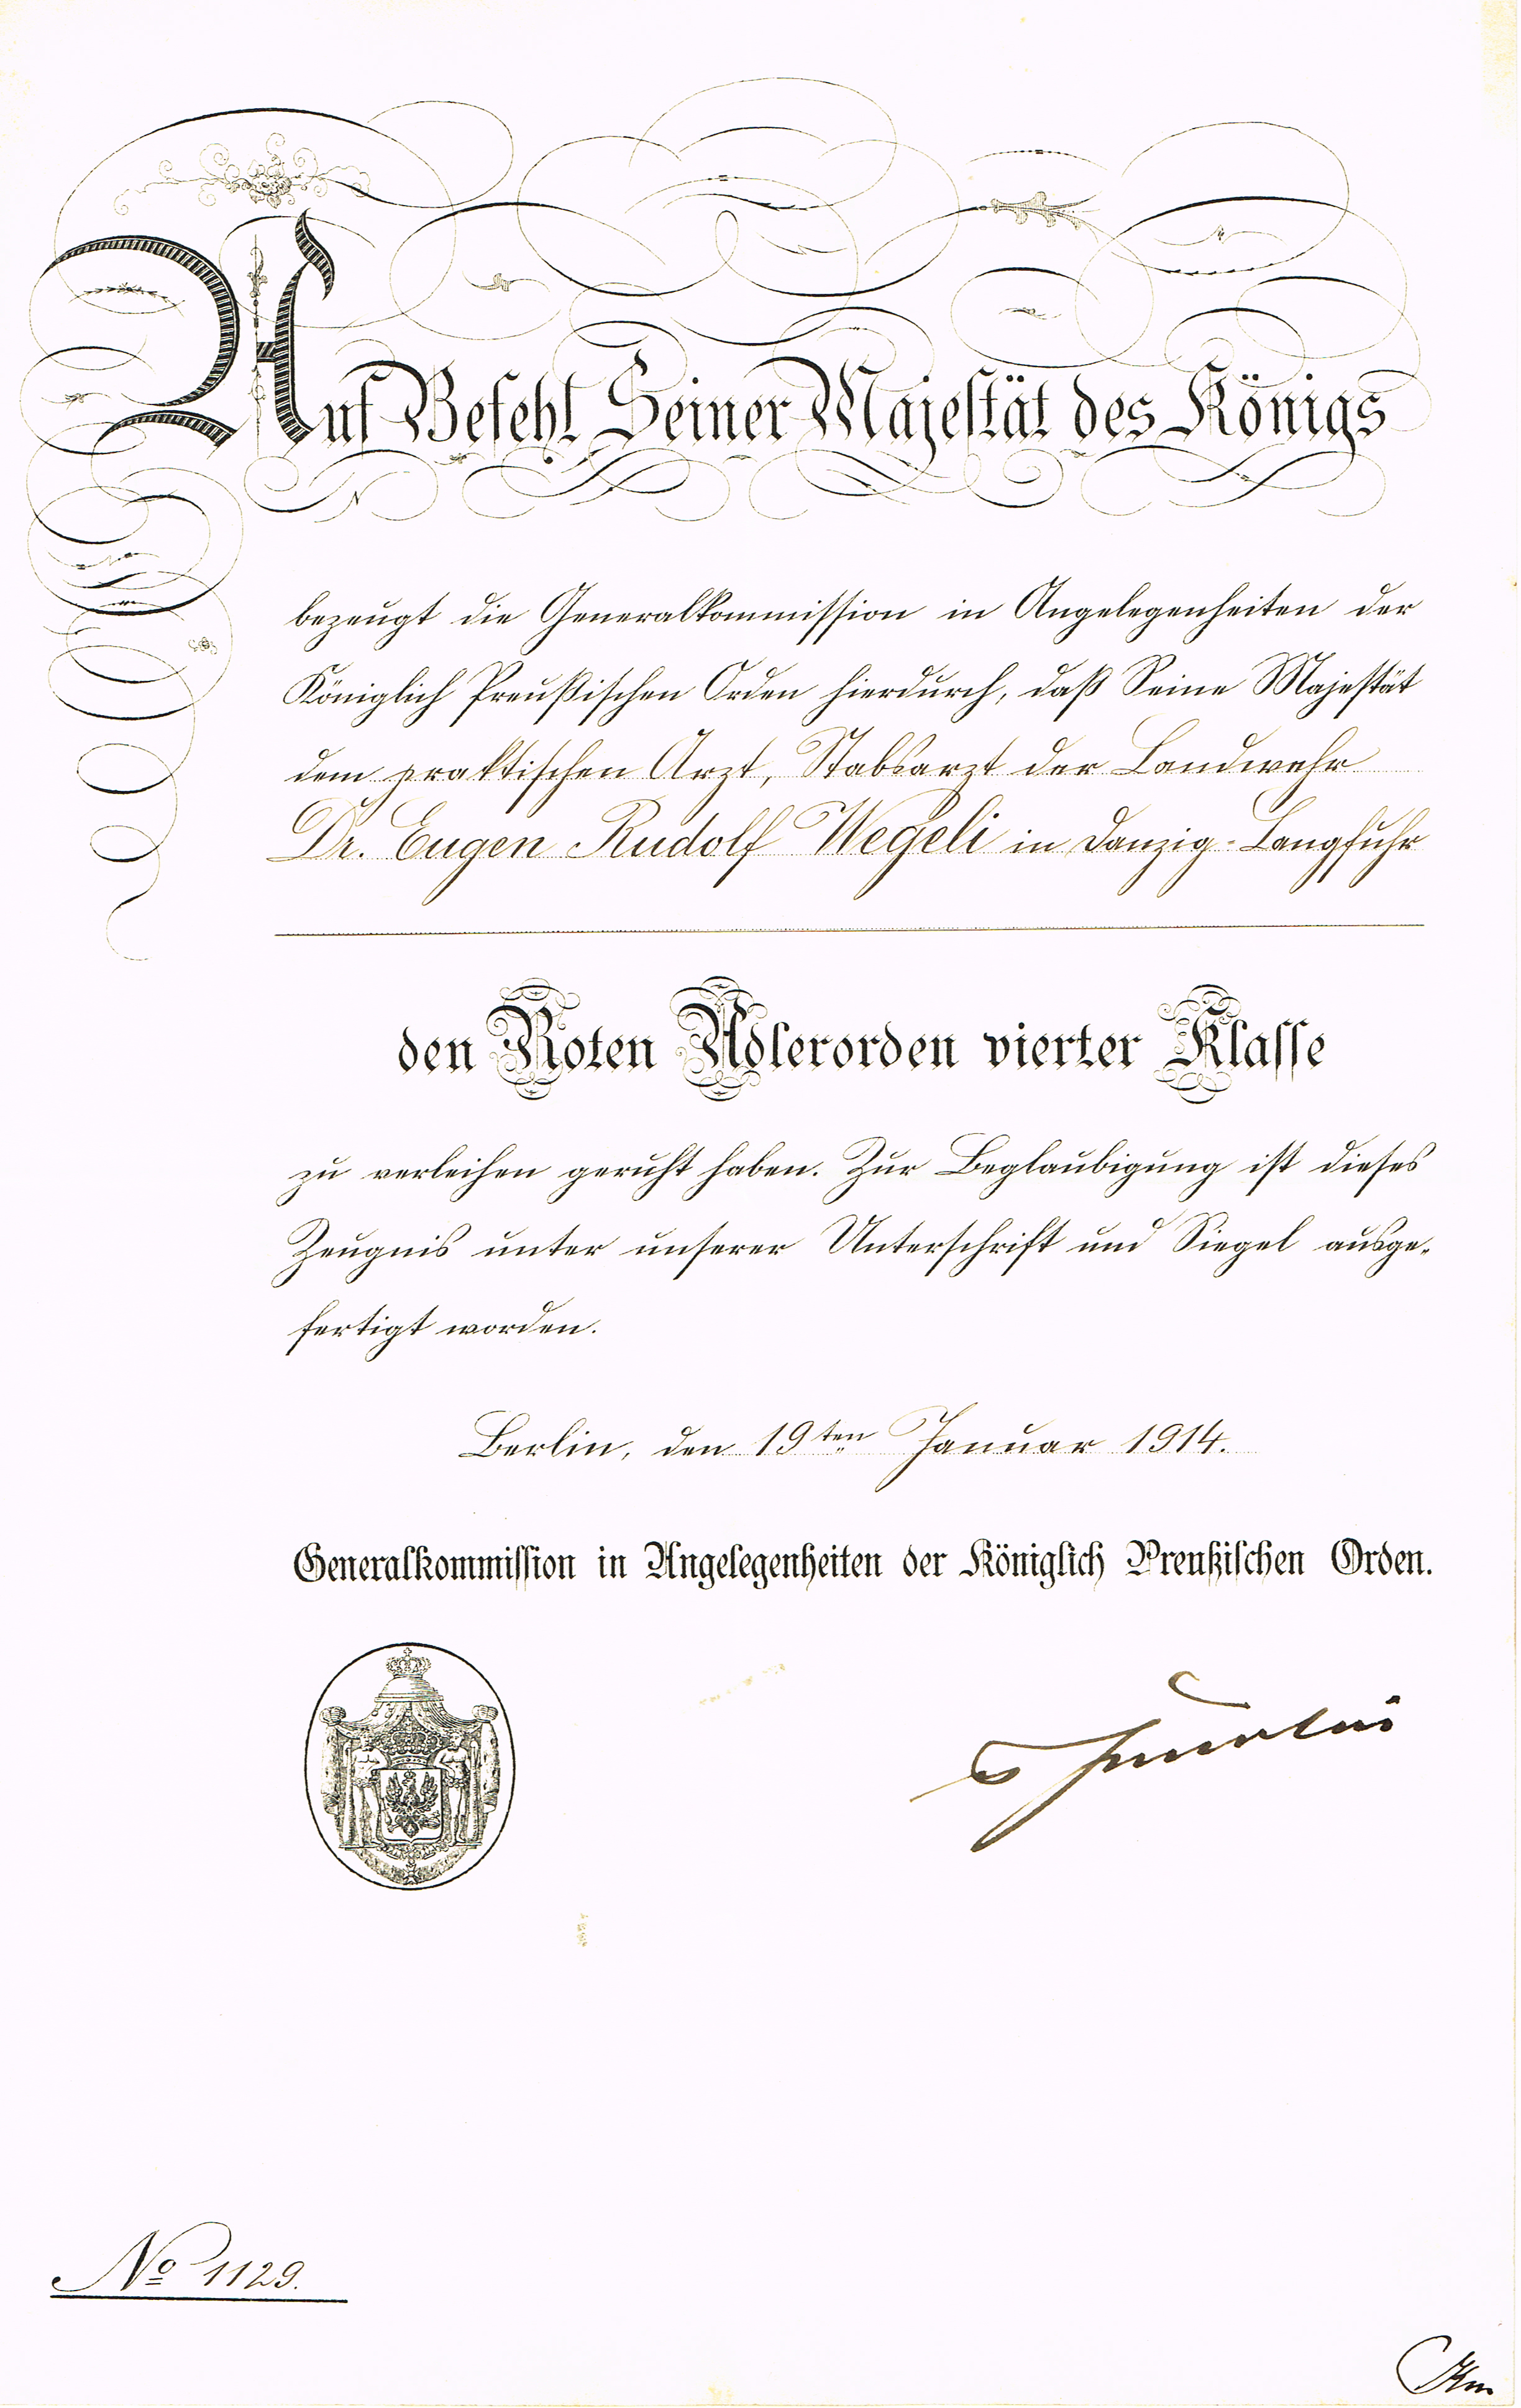 Auf Befehl Seiner Majestät des Königs
bezeugt die Generalkommission in Angelegenheiten der
Königlich Preußischen Orden hierdurch, daß Seine Majestät
dem praktischen Arzt, Stabsarzt der Landwehr
Dr. Eugen Rudolf Wegeli in Danzig-Langfuhr
den Roten Adlerorden vierter Klasse
zu verleihen geruht haben. Zur Beglaubigung ist dieses
Zeugnis unter unserer Unterschrift und Siegel ausge-
fertigt worden.
Berlin, den 19ten Januar 1914.
Generalkommission in Angelegenheiten der Königlich Preußischen Orden.
No 1129.